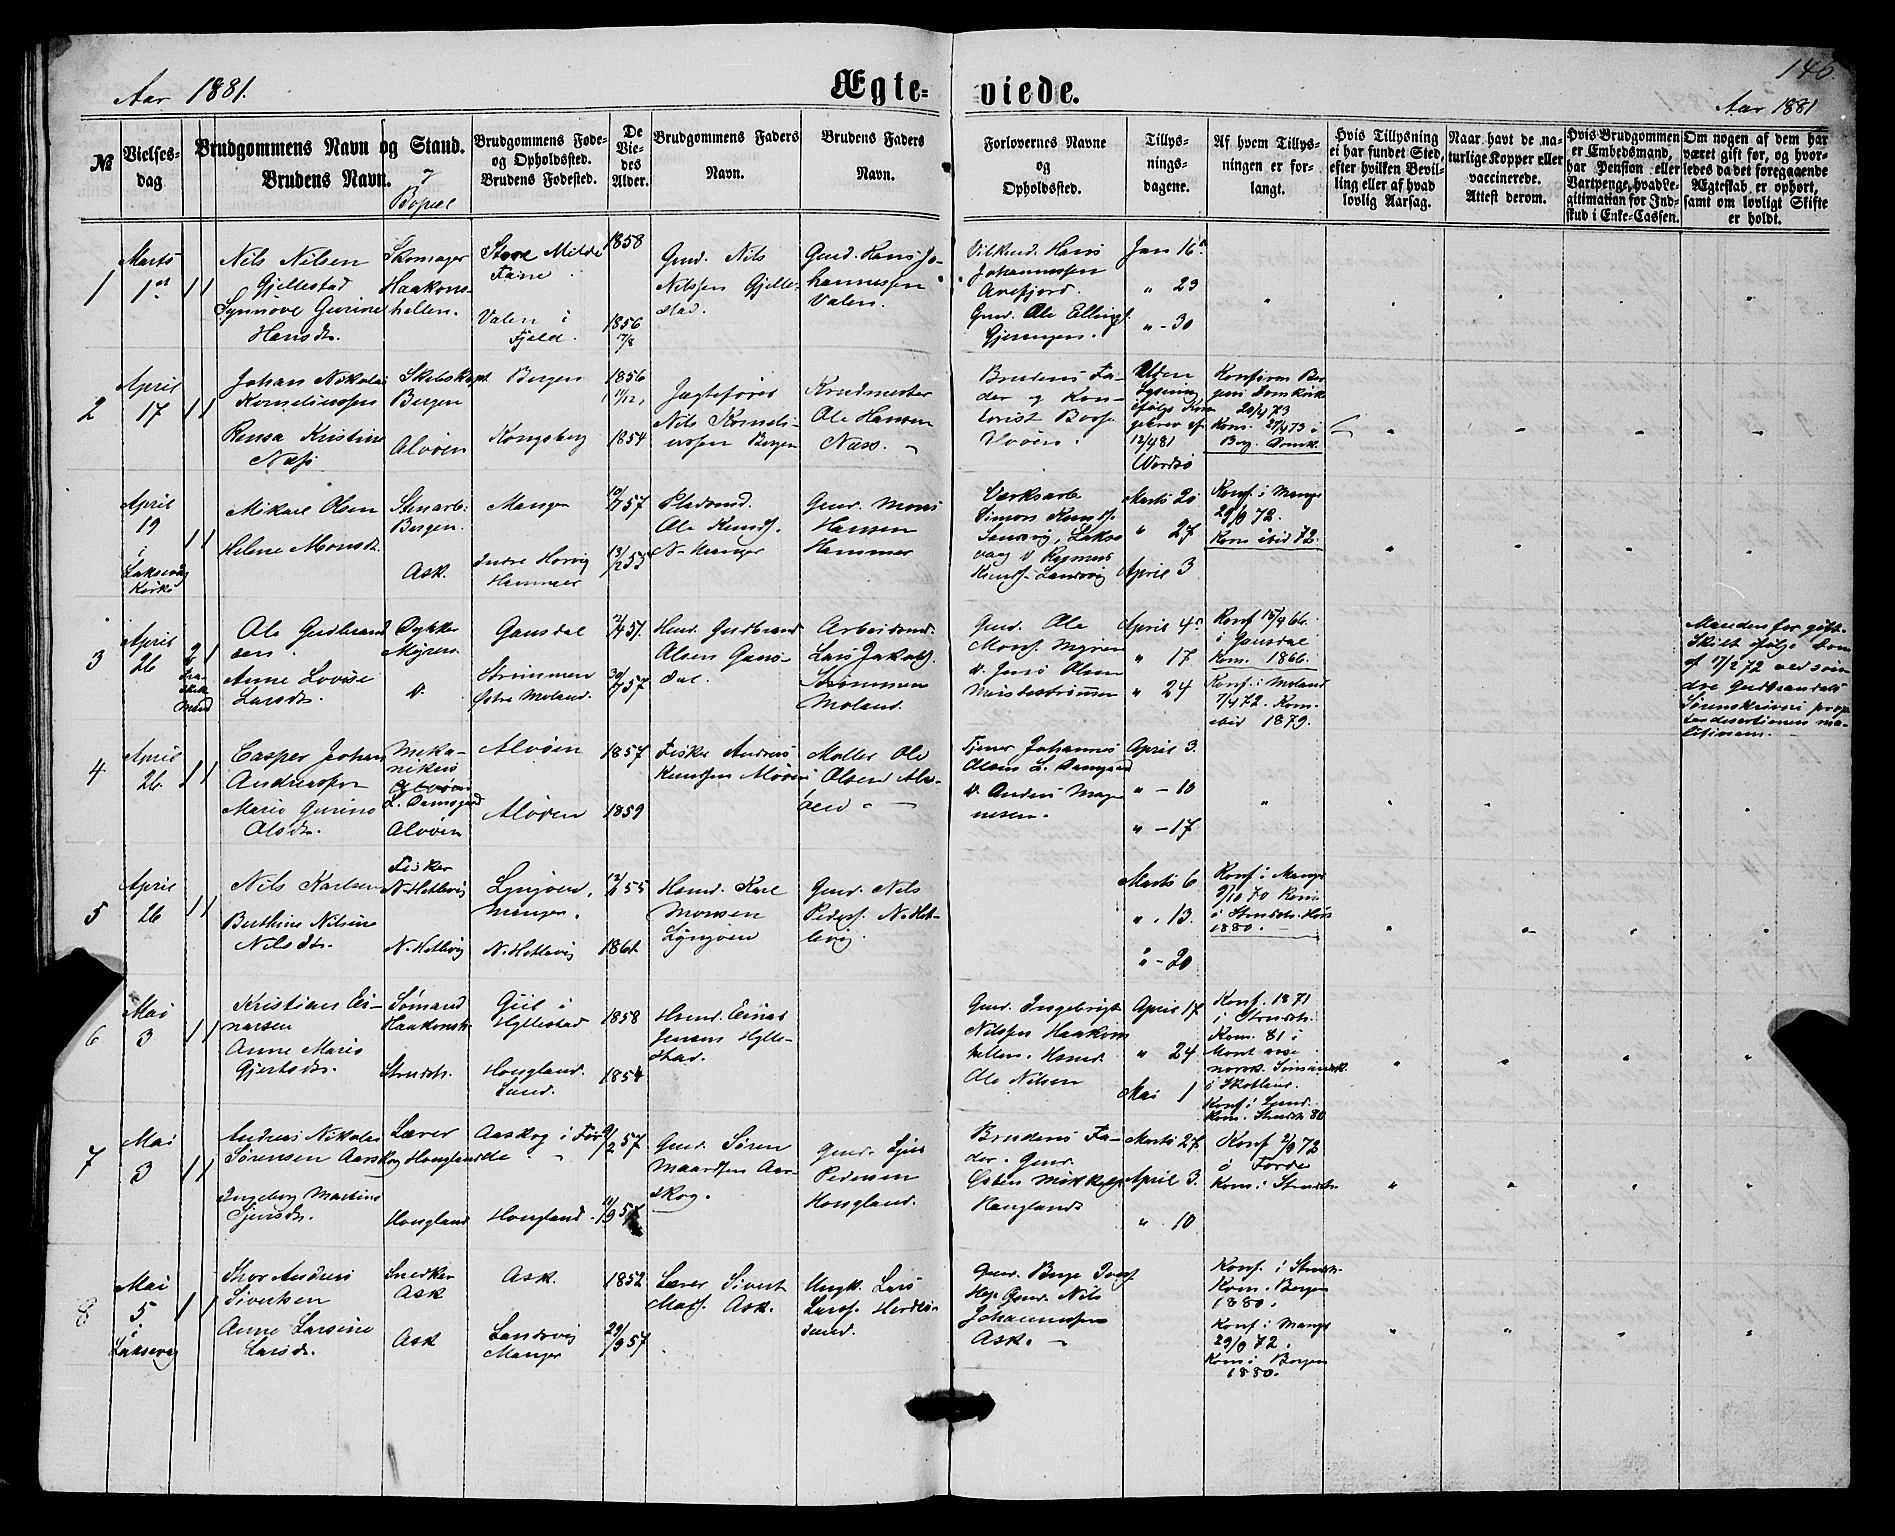 Aar 1881.
Ægte-
viede.
146.
Aar 1881
№
Vielses-
dag
Brudgommens Navn og Stand.
Brudens Navn.
og
Bopæl
Brudgommens Føde-
og Opholdssted.
Brudens Fødested.
De
Vie-
des
Alder.
Brudgommens Faders
Navn.
Brudens Faders
Navn.
Forlovernes Navne
og
Opholdssted.
Tillys-
nings-
dagene.
Af hvem Tillys-
ningen er for-
langt.
Hvis Tillysning
ei har fundet Sted,
efter hvilken Bevil-
ling eller af hvad
lovlig Aarsag.
Naar havt de na-
turlige Kopper eller
vaccinerede.
Attest derom.
Hvis Brudgommen
er Embedsmand,
har Pension eller
Vartpenge, hvad Le-
gitimation for Ind-
skud i Enke-Cassen.
Om nogen af dem har
været gift før, og hvor-
ledes da det foregaaende
Ægteskab er ophørt,
samt om lovligt Skifte
er holdt.
1
Marts
1ste
1 1
Nils Nilsen
Gjellestad
Synnøve Gurine
Hansdr.
Skomager
Haakons-
hellen.
Store Milde
Fane
Valen i
Fjeld.
1858
1856
17/8
Gmd. Nils
Nilssen Gjelle-
stad.
Gmd. Hans Jo-
hannessen
Valen.
Hans
Johannessen
Gmd. Ole Ellings.
Jan 16de
" 23
" - 30
2
April
17
1 1
Johan Nikolai
Korneliussen
Rensa Kristine
Næss
Skibskapt.
Bergen
Alvøen
Bergen
Kongsberg
1856
11/12
1854
Jægtefører
Nils Korneli-
ussen Bergen
Krudmester
Ole Hansen
Næss.
Brudens Fa-
der og Kon-
torist
Uden
Lysning
ifølge Kon-
gebrev af
12/4 81
Konf. i Ber
gens Domkirke
20/4 73
Kom. 27/4 73 i
Berg. Domk.
April
19
i
Laksevåg
Kirke
1 1
Mikael Olsen
Helene Monsdr.
Stenarb.
Bergen.
Ask.
Manger
Indre
Hammer
10/7 57
13/12 53
Pladsmd.
Ole Knuds.
N- Manger
Gmd. Mons
Hansen
Hammer
Værksarb
Simon Knuds.
Sandvig, Lakse
vaag & Rasmus
Knuds. Landsvig
Marts 20
" 27
April 3
Konf. i Mange
29/9 72.
Kom. ibid 72.
3
April
26
2 1
Fra
skilt
Mand
Ole Gudbrand
sen
Anne Lovise
Larsdr.
Dykker
Myren
Do.
Gausdal
Strømmen
Østre Moland.
12/4 51.
30/7 57
Hmd. Gudbrand
Olsen Gaus-
dal.
Arbeidsmd.
Lars Jakobs.
Strømmen
Moland.
Gmd. Ole
Mons. Myren
& Jens Olsen
April 4de
" 17
" 24
Konf 15/4 66
i Gausdal
Kom. 1866.
Konf. i Moland
7/4 72. Kom.
ibid 1879.
Manden før gift.
Skilt ifølge Dom
af 17/2 72 ved søn
dre Gudbrandsdals
Sorenskriveri prop-
ter desertionem ma-
litiosam.
4
April
26.
1 1
Casper Johan
Andreassen
Marie Gurine
Olsdr.
Meka-
nikus
Alvøen
L. Damsgaard
Alvøen
Alvøen
Alvøen
1857
1859
Fisker Andreas
Knutsen Alvøen
Møller Ole
Olsen Alv-
øen
Tjener Johannes
Olsen L. Damgaard
& Anders Mag-
nesen.
April 3.
" - 10
" - 17
5
April
26
1 1
Nils Karlsen
Berthine Nilsine
Nilsdr.
Fisker
N. Hetlevig
N. Hetlevig
Lyngøen,
Manger.
N. Hetlevig
12/6 55
1861.
Hsmd. Karl
Monsen
Lyngøen
Gmd. Nils
Peders. N. Het-
levig.
Marts 6
" . 13.
" - 20
Konf. i Mange
9/10 70 Kom
i Strudsh. Høst
1880.
6
Mai
3
1 1
Kristian Ei-
narsen
Anne Marie
Gjertsdr.
Sømand
Haakonsh.
Strudsh.
Giil i
Hyllestad
Hougland.
Sund.
1858
1854
Hsmd. Einar
Jensen Hylle-
stad.
Gmd. Ingebrigt
Nilssen Haakons
hellen. Hsmd.
Ole Nilsen
April 17
" 24
Mai 1
Konf. 1871
i Strudsh.
Kom. 81 i
Montrose
norsk. Sømandsk.
i Skotland.
Konf. i Sund.
Kom. Strudsh 80
7
Mai
3
1 1
Andreas Nikolai
Sørensen Aarskog
Ingeborg Martine
Sjursdr.
Lærer
Hougland
Hougland
Aaskog i Før-
de
Hougland.
9/2 57
11/9 57
Gmd. Søren
Maartsen Aar-
skog.
Gmd. Sjur
Pedersen
Hougland.
Brudens Fa-
der. Gmd.
Østen
Hauglands
Marts 27
April 3.
" . 10
Konf 2/9 72
i Førde
Kom. i Strudsh.
8
Mai
5
i
Laksevåg
1 1
Thor Andreas
Sivertsen
Anne Larsine
Larsdr.
Snedker
Ask
Ask
Ask.
Landsvig
Manger
1852
29/9 57
Lærer Sivert
Mats. Ask.
Ungk. Lars
Larss. Herdlø-
sund.
Gmd. Børge
Gmd. Nils
Johannessen
Ask.
Konf. i Strudsh.
Kom. Bergen
1880.
Konf. i Mange
29/9 72.
Kom i Bergen
1880.